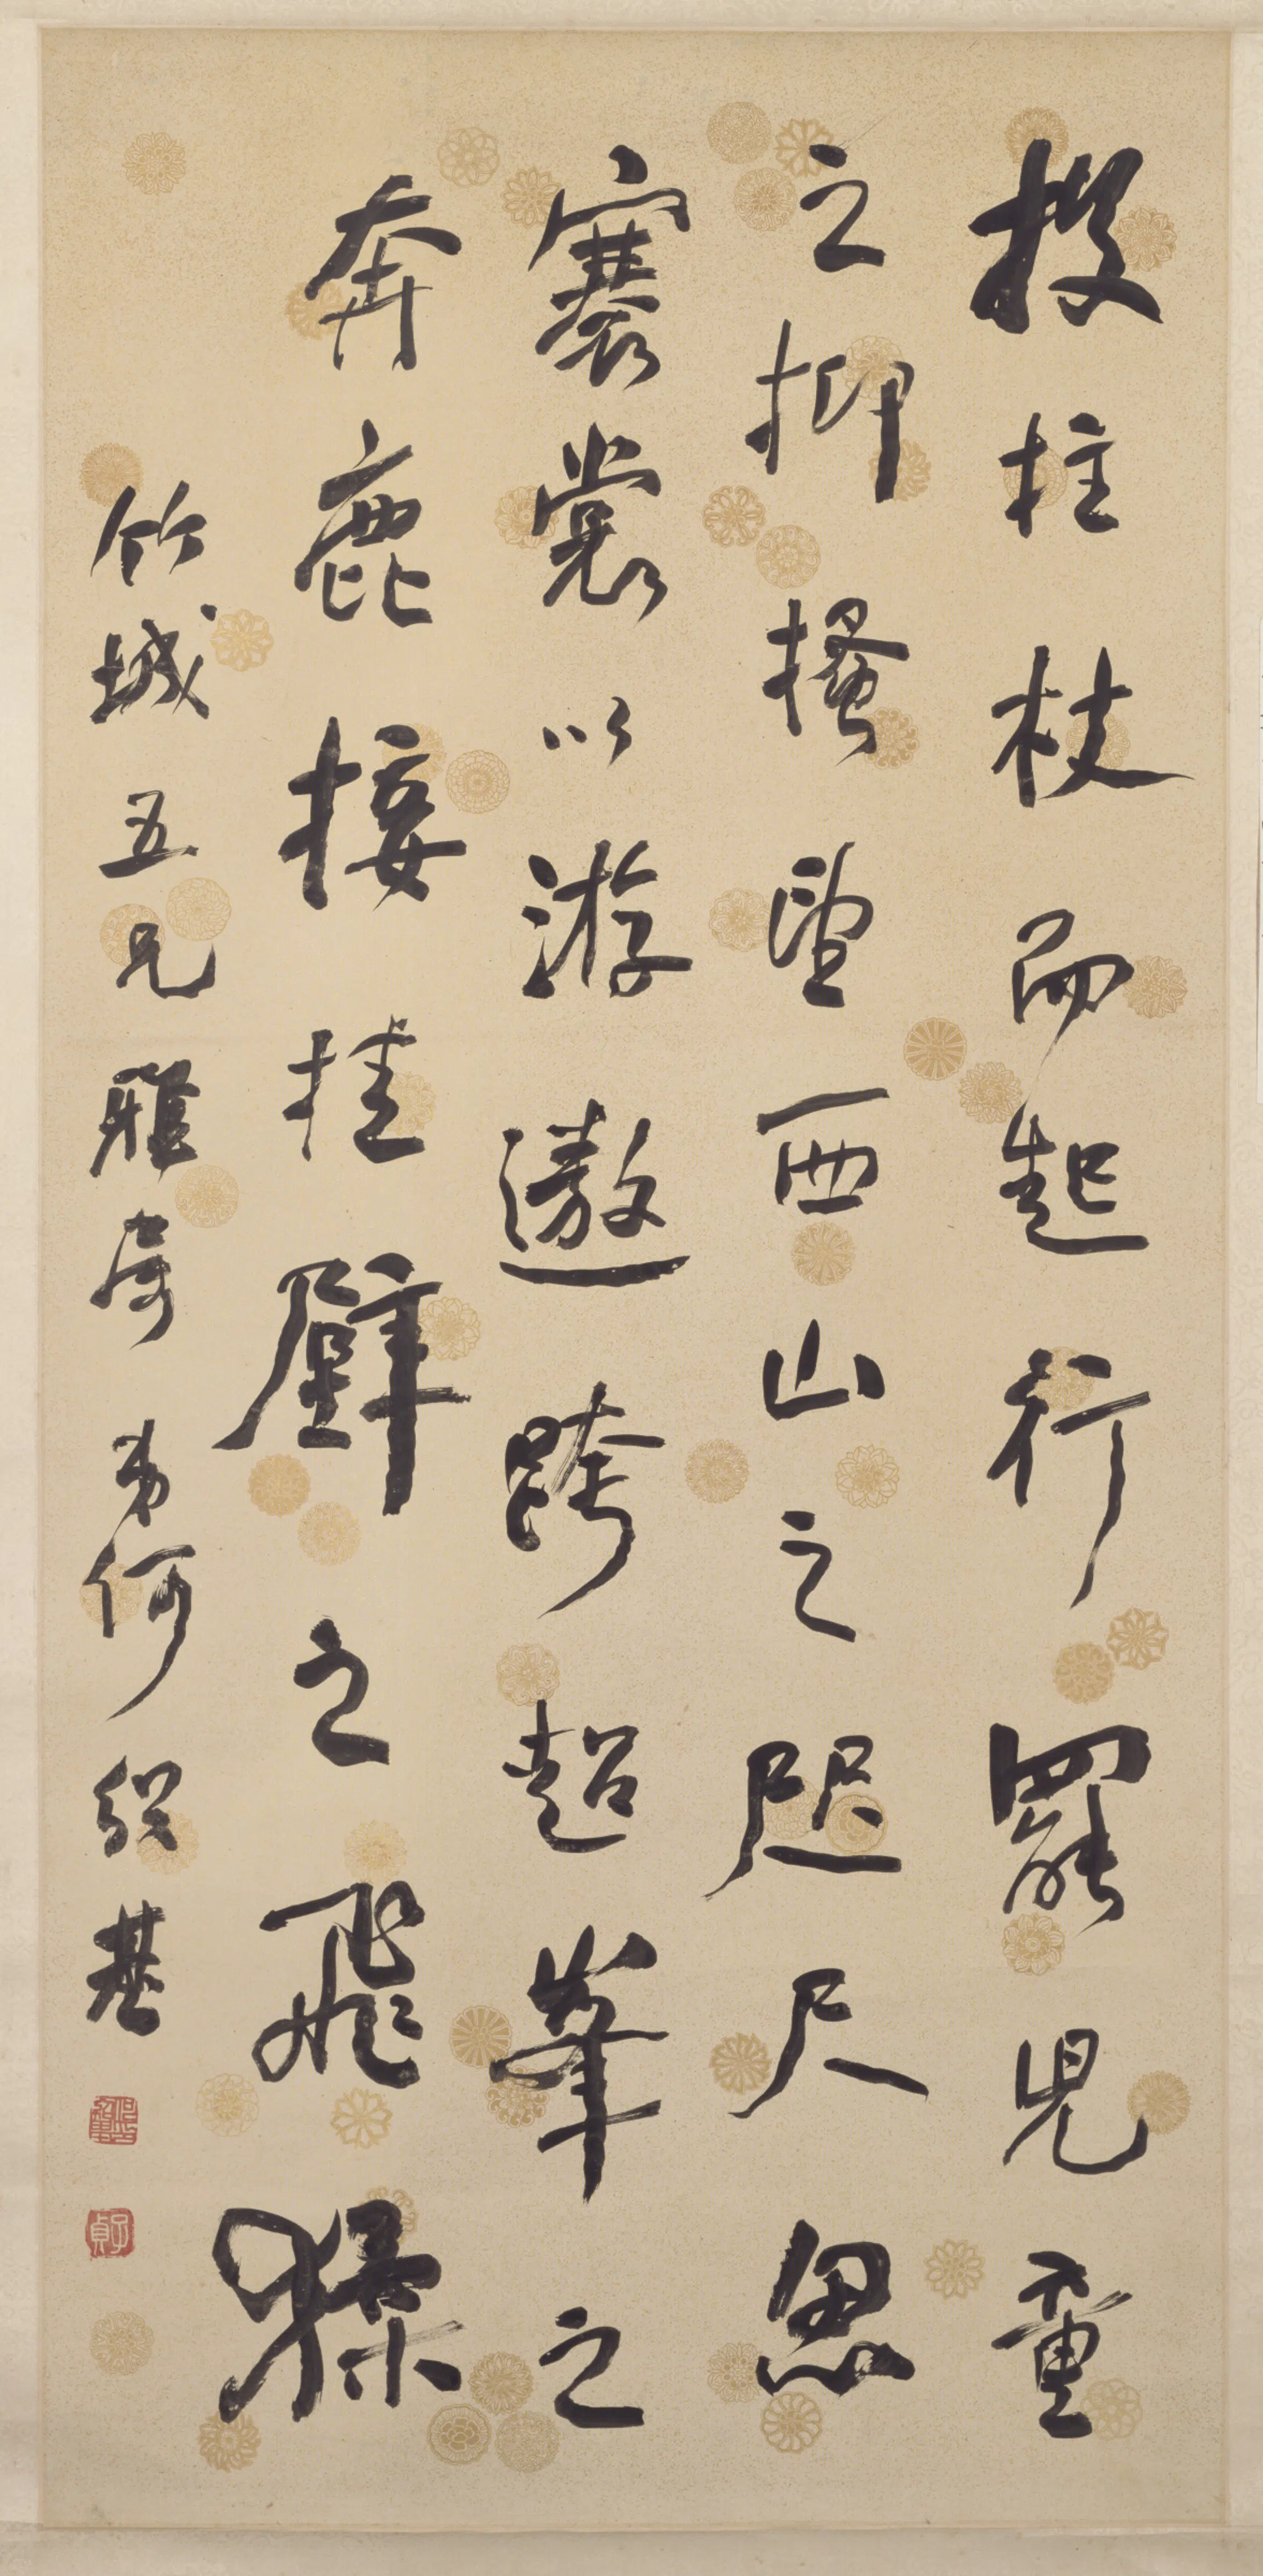 投拄杖而起行罷兒童
之抑搔望西山之咫尺
褰裳以游遨跨超峯之
奔鹿接挂壁之飛猱
竹城五兄雅屬弟何紹基
子貞